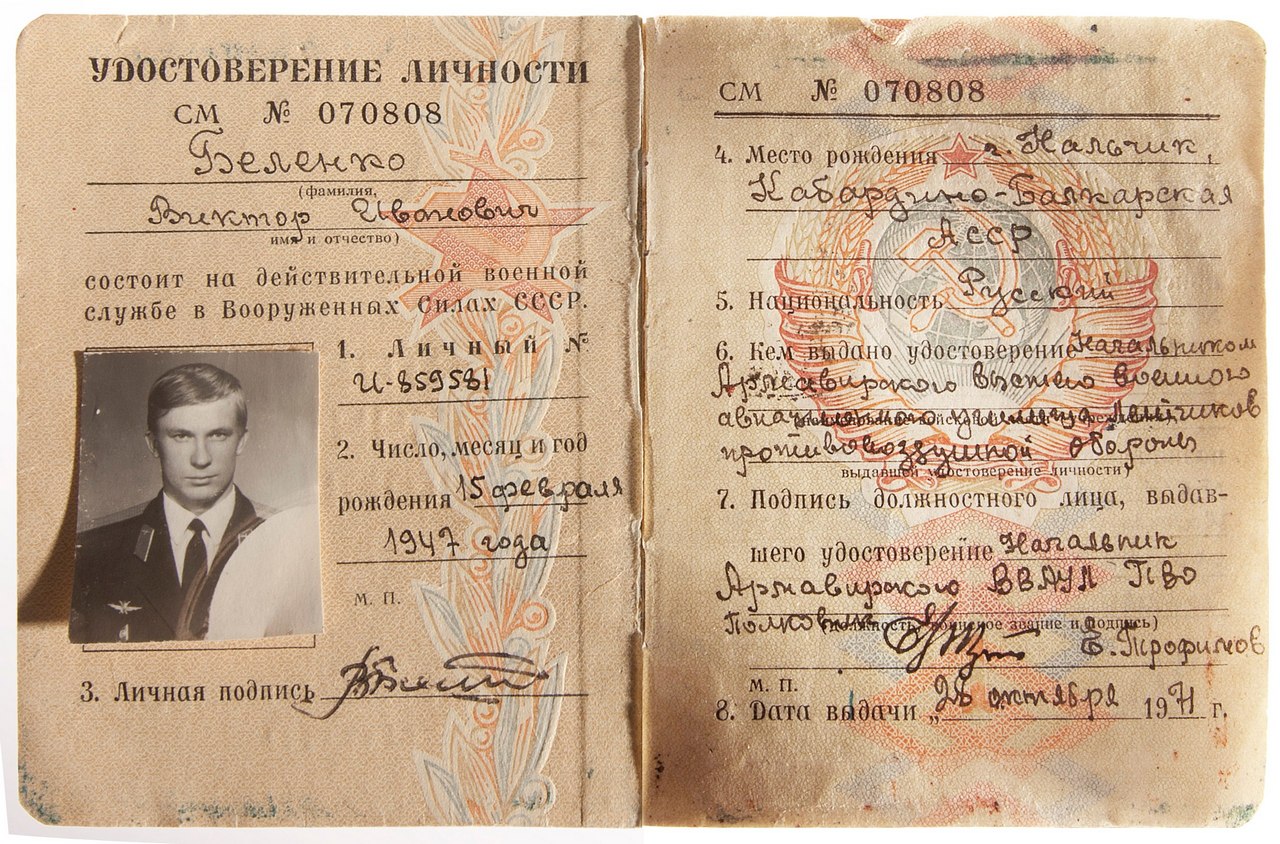 УДОСТОВЕРЕНИЕ ЛИЧНОСТИ
СМ № 070808
Беленко
(фамилия,
Виктор Иванович
имя и отчество)
состоит на действительной военной
службе в Вооруженных Силах СССР.
1. Личный №
И-859581
2. Число, месяц и год
рождения 15 февраля
1947 года
М. П.
3. Личная подпись
СМ № 070808
4. Место рождения г. Нальчик,
Кабардино-Балкарская
АССР
5. Национальность Русский
6. Кем выдано удостоверение Начальником
Армавирского высшего военного
авиационного училища летчиков
противовоздушной обороны
выдавшей удостоверение личности)
7. Подпись должностного лица, выдав-
шего удостоверение Начальник
Армавирского ВВАУЛ ПВО
Полковник (должность, воинское звание и подпись)
Е. Трофимов
М. П.
8. Дата выдачи „26 октября 1971 г.